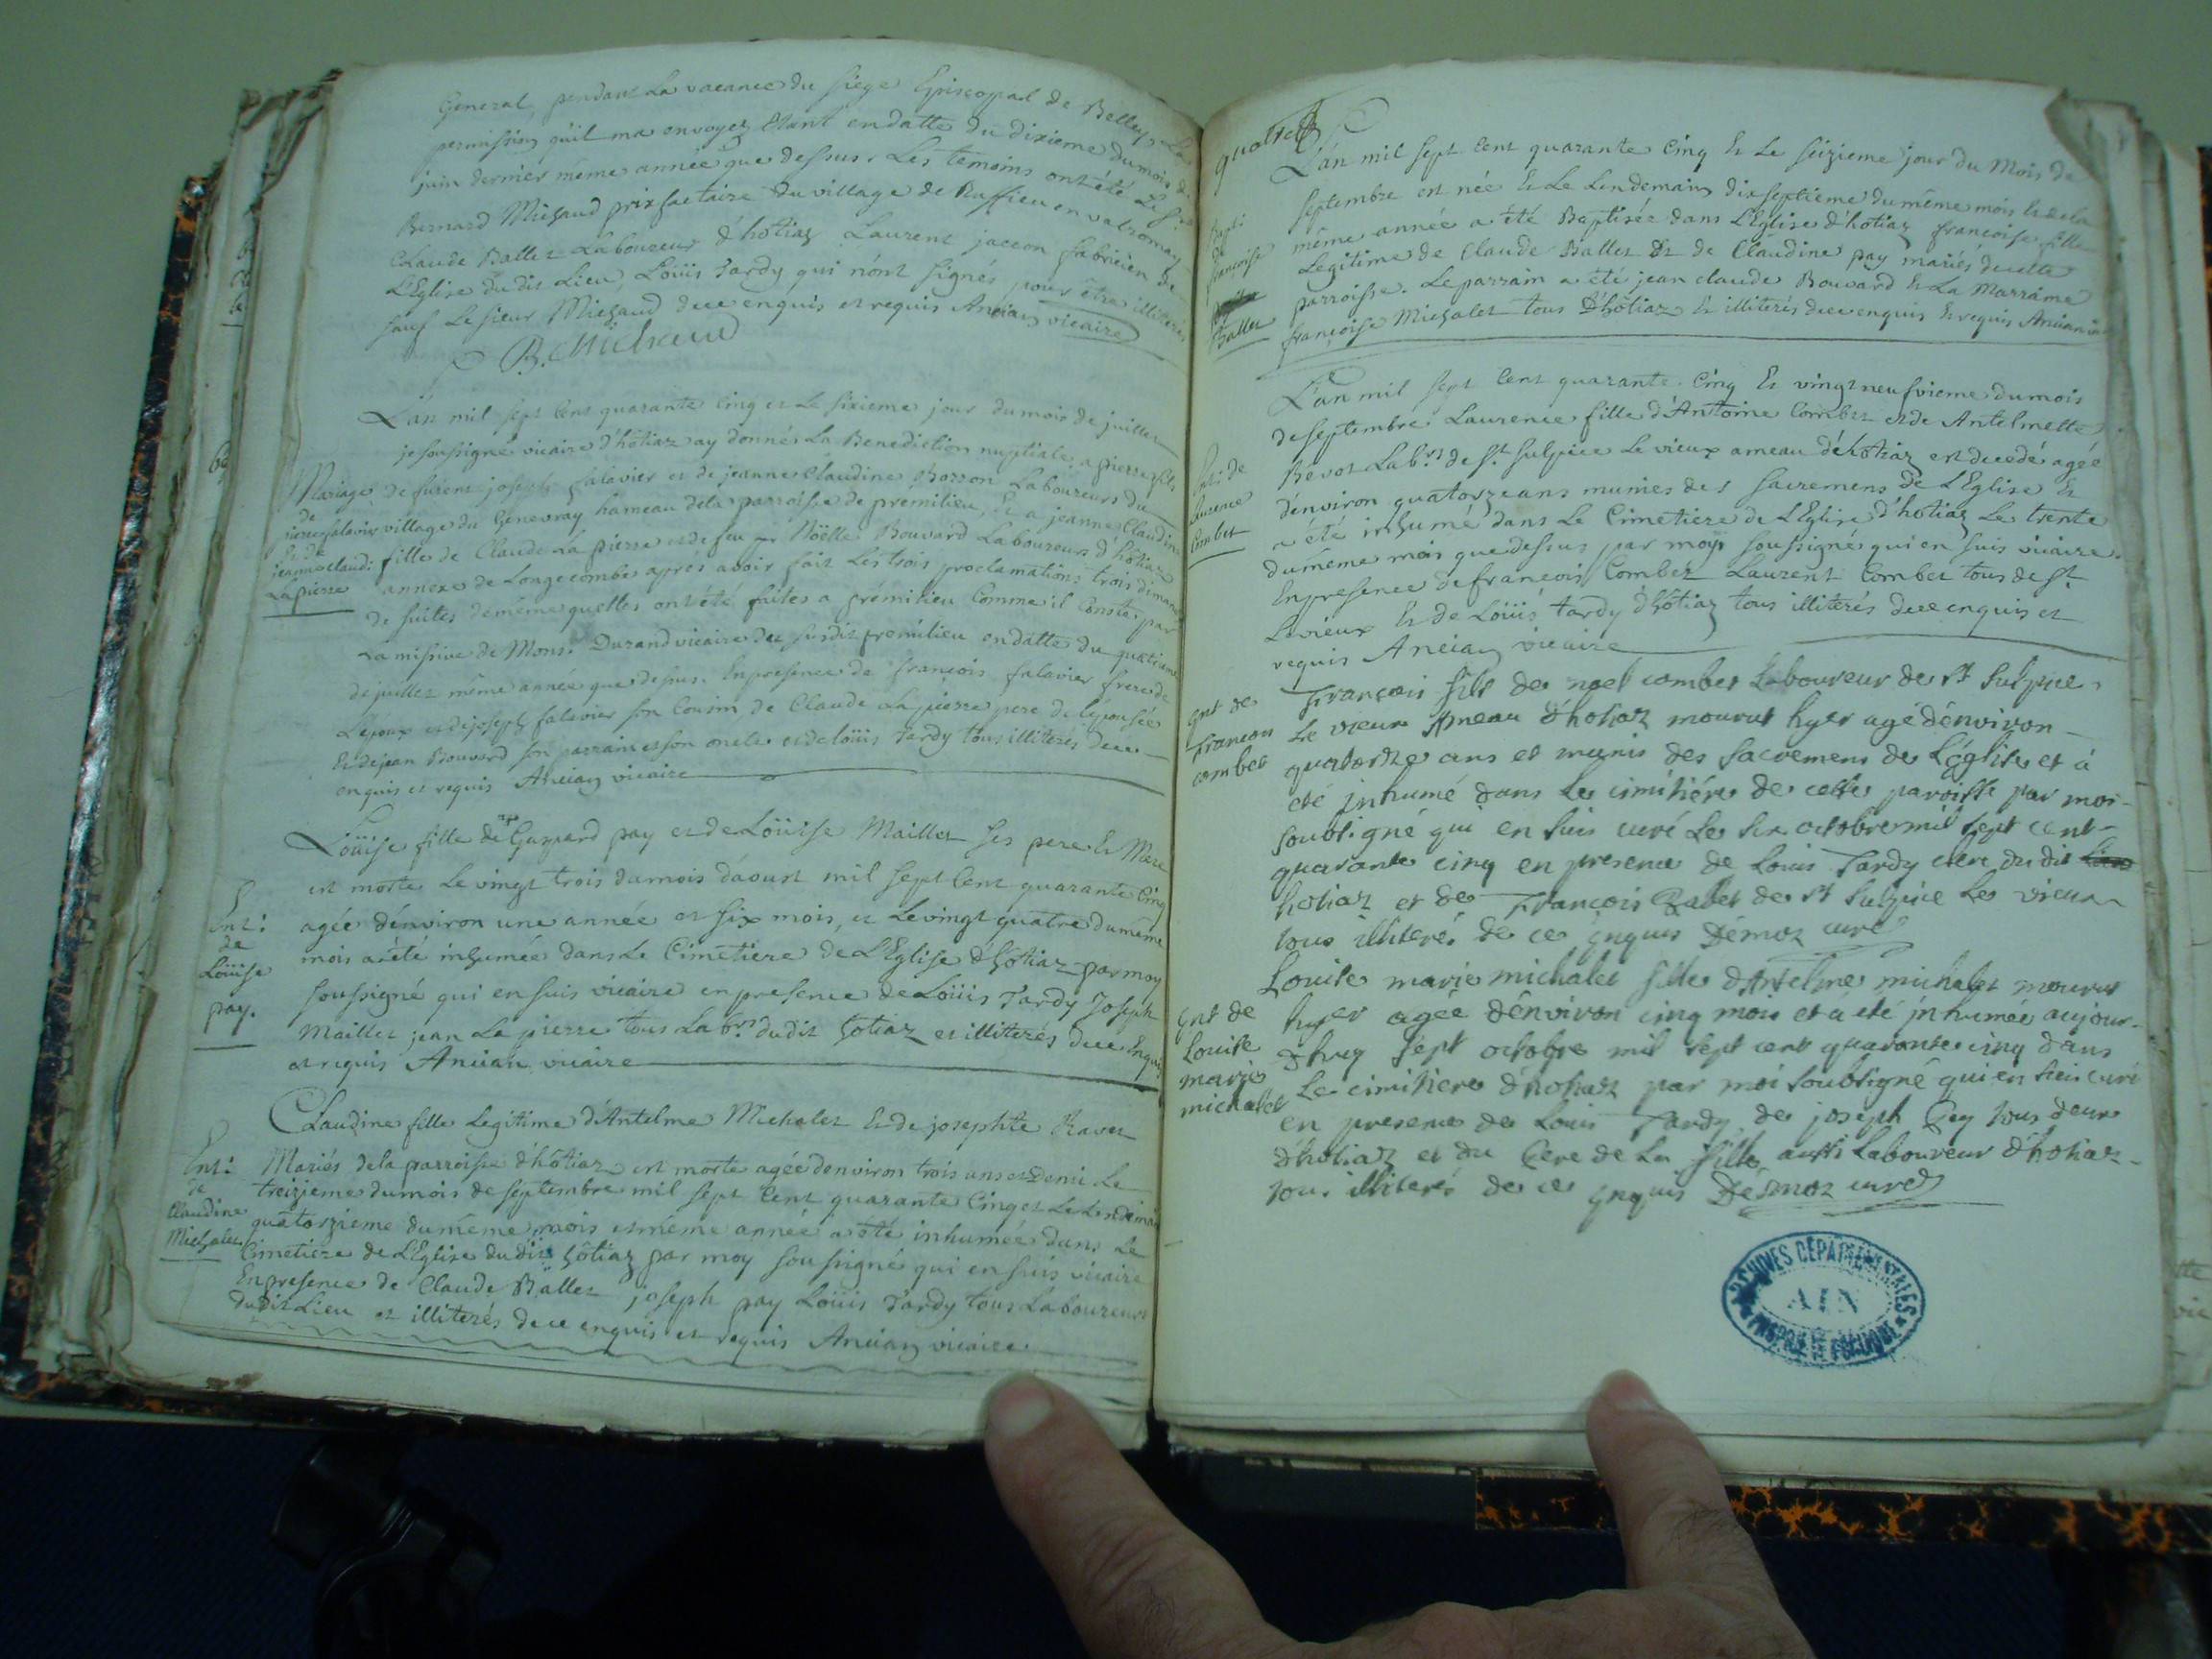 General, pendant La vacance du siege Episcopal de Belley, La
permission qu'il ma envoyez étant en datte du dixieme du mois de
juin dernier même année que dessus. Les temoins ont été Le Sr
Bernard Michaud prix factaire du village de Ruffieu en valromay
Claude Ballet Laboureur d'hôtiaz Laurent jaccon fabricien de
L'Eglise dudit Lieu, Loüis Tardy qui n'ont signés pour être illiterés
sauf Le sieur Michaud de ce enquis et requis Ancian vicaire
B. Michaud
L'an mil sept Cent quarante Cinq et Le sixieme jour du mois de juillet
je soussigné vicaire d'hôtiaz ay donnés La Benediction nuptiale a pierre fils
Mariage de furent joseph falavier et de jeanne Claudine Borron Laboureurs du
de
pierre falavier village du Genevray hameau de la parroisse de premilieu, Et a jeanne Claudine
Et de
jeanne Claudi: fille de Claude La pierre et de feu Noëlle Bouvard Laboureurs d'hôtiaz
La pierre annexe de Longecombe aprés avoir fait Les trois proclamations trois dimanch
de suites de même quelles ont été faites a prémilieu Comme il Conste par
La missive de Mons. Durand vicaire du susdit premilieu en datte du quatrieme
de juillet même année que dessus. En presence de françois falavier frere de
L'époux et de joseph falavier son Cousin, de Claude La pierre pere de l'épousée
Et de jean Bouvard son parrain et son oncle et de loüis Tardy tous illiterés de ce
enquis et requis Ancian vicaire
Loüise fille de Gaspard pay et de Loüise Maillet ses pere et Mere
est morte Le vingt trois du mois d'aoust mil sept Cent quarante Cinq
Ent: agée d'environ une année et six mois, et Le vingt quatre du même
de
Loüise mois a été inhumée dans Le Cimetiere de L'Eglise d'hôtiaz par moy
pay. soussigné qui en suis vicaire en presence de Loüis Tardy Joseph
Maillet jean La pierre tous Labrs dudit hotiaz et illiterés de ce Enquis
et requis Ancian vicaire
Claudine fille Legitime d'Antelme Michalet Et de josephte Ravet
Ent: Mariés de la parroisse d'hôtiaz est morte agée d'environ trois ans et demi Le
de
Claudine treizieme du mois de septembre mil sept Cent quarante Cinq et Le Lendemain
Michalet quatorzieme du même mois et même année a été inhumée dans Le
Cimetiere de L'Eglise dudit hôtiaz par moy soussigné qui en suis vicaire
En presence de Claude Ballet joseph pay Loüis Tardy tous Laboureurs
dudit Lieu et illiterés de ce enquis et requis Ancian vicaire
quatre
L'an mil sept Cent quarante Cinq Et Le seizieme jour du Mois de
septembre est née Et Le Lendemain dixseptieme du même mois Et de la
Bapt:
de
francoise même année a été Baptisée dans L'Eglise d'hotiaz francoise fille
Legitime de Claude Ballet Et de Claudine pay mariés de cette
Ballet parroisse. Le parrain a été jean claude Bouvard Et La Marraine
françoise Michalet tous D'hôtiaz Et illiterés de ce enquis Et requis Ancian
L'an mil sept Cent quarante Cinq Et vingt neufvieme du mois
de septembre Laurence fille d'Antoine Combet et de Antelmette
Ent: de
Laurence
Combet
Bevot Labrs de St Sulpice Le vieux ameau d'hôtiaz est decedé agée
d'environ quatorze ans munies des sacremens de L'Eglise Et
a été inhumé dans Le Cimetiere de L'Eglise d'hotiaz Le trente
du même mois que dessus par moy soussigné qui en suis vicaire.
En presence de francois Combet Laurent Combet tous de St
Levieux Et de Loüis Tardy d'hôtiaz tous illiterés de ce enquis et
requis Ancian vicaire
ent de
francois
combet
François fils de noel combet Laboureur de st sulpice
Le vieux Ameau d'hotiaz mourut hyer agé d'environ
quatorze ans et munis des sacremens de L'église et à
eté jnhumé dans Le cimitiére de cette paroisse par moi
soubsigné qui en suis curé Le six octobre mil sept cent
quarante cinq en presence de Louis Tardy clerc du dit
hotiaz et de François Balet de st sulpice Le vieux
tous illiteré de ce enquis Démoz curé
ent de
Louise
marie
michalet
Louise marie michalet fille d'Antelme michalet mourut
hyer agée d'environ cinq mois et a été jnhumée aujour
d'huy sept octobre mil sept cent quarante cinq dans
Le cimitiere d'hotiaz par moi soubsigné qui en suis curé
en presence de Louis Tardy de joseph Pey tous deux
d'hotiaz et du Pere de La fille aussi Laboureur d'hotiaz
tous illiteré de ce enquis Démoz curé
ARCHIVES DÉPARTEMENTALES
AIN
PROPRIÉTÉ PUBLIQUE